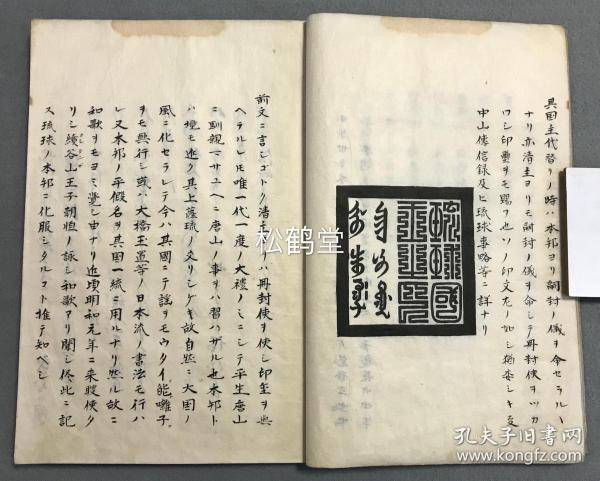 其国主代替リノ時ハ本邦ヨリ嗣封ノ儀ヲ令セラルヽ
ナリ亦清主ヨリモ嗣封ノ儀ヲ命シテ冊封使ヲツカ
ワシ印璽ヲモ賜フ也ソノ印文左ノ如シ猶委シキ
中山傳信録及ヒ琉球事略等ニ詳ナリ
琉球國
王之印
前文ニ言シゴトク清主ヨリハ冊封使ヲ使シ印璽ヲ与
ヘラルレ𪜈唯一代一度ノ大禮ノミニシテ平生唐山
ニ馴親
ニ唐山ノ事ヲハ習ハザル也本邦ト
ハ境モ近ク其上薩琉ノ交リシケキ故自然ニ大国ノ
風ニ化セラレテ今ハ其國ニテ謡ヲモウタイ能囃子
ヲモ興行シ或ハ大橋玉置等ノ日本流ノ書法モ行ハ
レ又本邦ノ平假名ヲ其国一統ニ用ルナリ然ル故ニ
和歌ヲモヨミ覺シ由ナリ近頃明和元年ニ来聘使タ
リシ續谷山王子朝恒ノ詠シ和歌アリ聞シ侭此ニ記
ス琉球ノ本邦ニ化服シタルコト推テ知ベシ
松鹤堂
孔夫子旧书网
www.kongfz.com